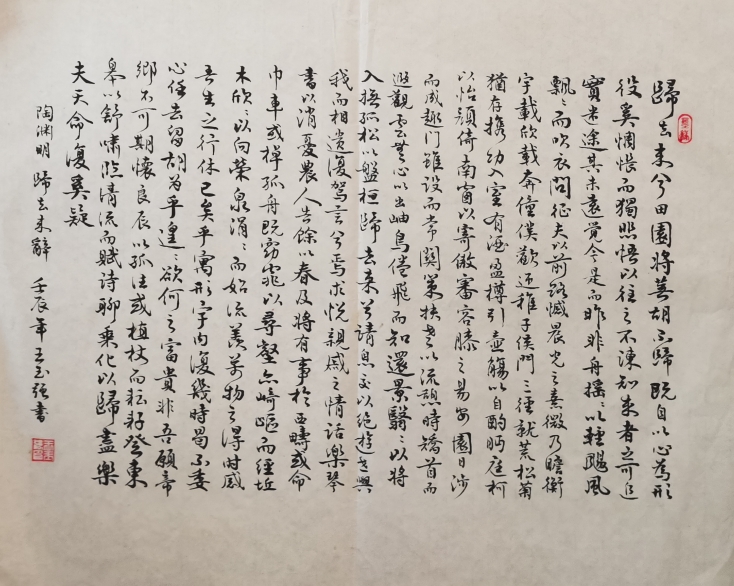 歸去来兮田園將蕪胡不歸既自以心為形
役奚惆悵而獨悲悟以往之不諫知来者之可追
實迷途其未遠覺今是而昨非舟摇摇以輕颺風
飄飄而吹衣問征夫以前路憾晨光之熹微乃瞻衡
宇載欣載奔僮僕歡迎稚子候門三徑就荒松菊
猶存携幼入室有酒盈樽引壺觴以自酌眄庭柯
以怡顏倚南窗以寄傲審容膝之易安園日涉
而成趣門雖設而常關策扶老以流憩時矯首而
遐觀雲無心以出岫鳥倦飛而知還景翳翳以將
入撫孤松以盤桓歸去来兮請息交以绝遊世與
我而相遺復駕言兮焉求悦親戚之情話樂琴
書以消憂農人告餘以春及將有事於西疇或命
巾車或棹孤舟既窈窕以尋壑亦崎嶇而經丘
木欣欣以向榮泉涓涓而始流羨萬物之得时感
吾生之行休已矣乎寓形宇内復幾時曷不委
心任去留胡為乎遑遑欲何之富貴非吾願帝
鄉不可期懷良辰以孤往或植杖而耘耔登東
皋以舒嘯臨清流而賦詩聊乘化以歸盡樂
夫天命復奚疑
陶渊明歸去来辭 壬辰年王玉强書